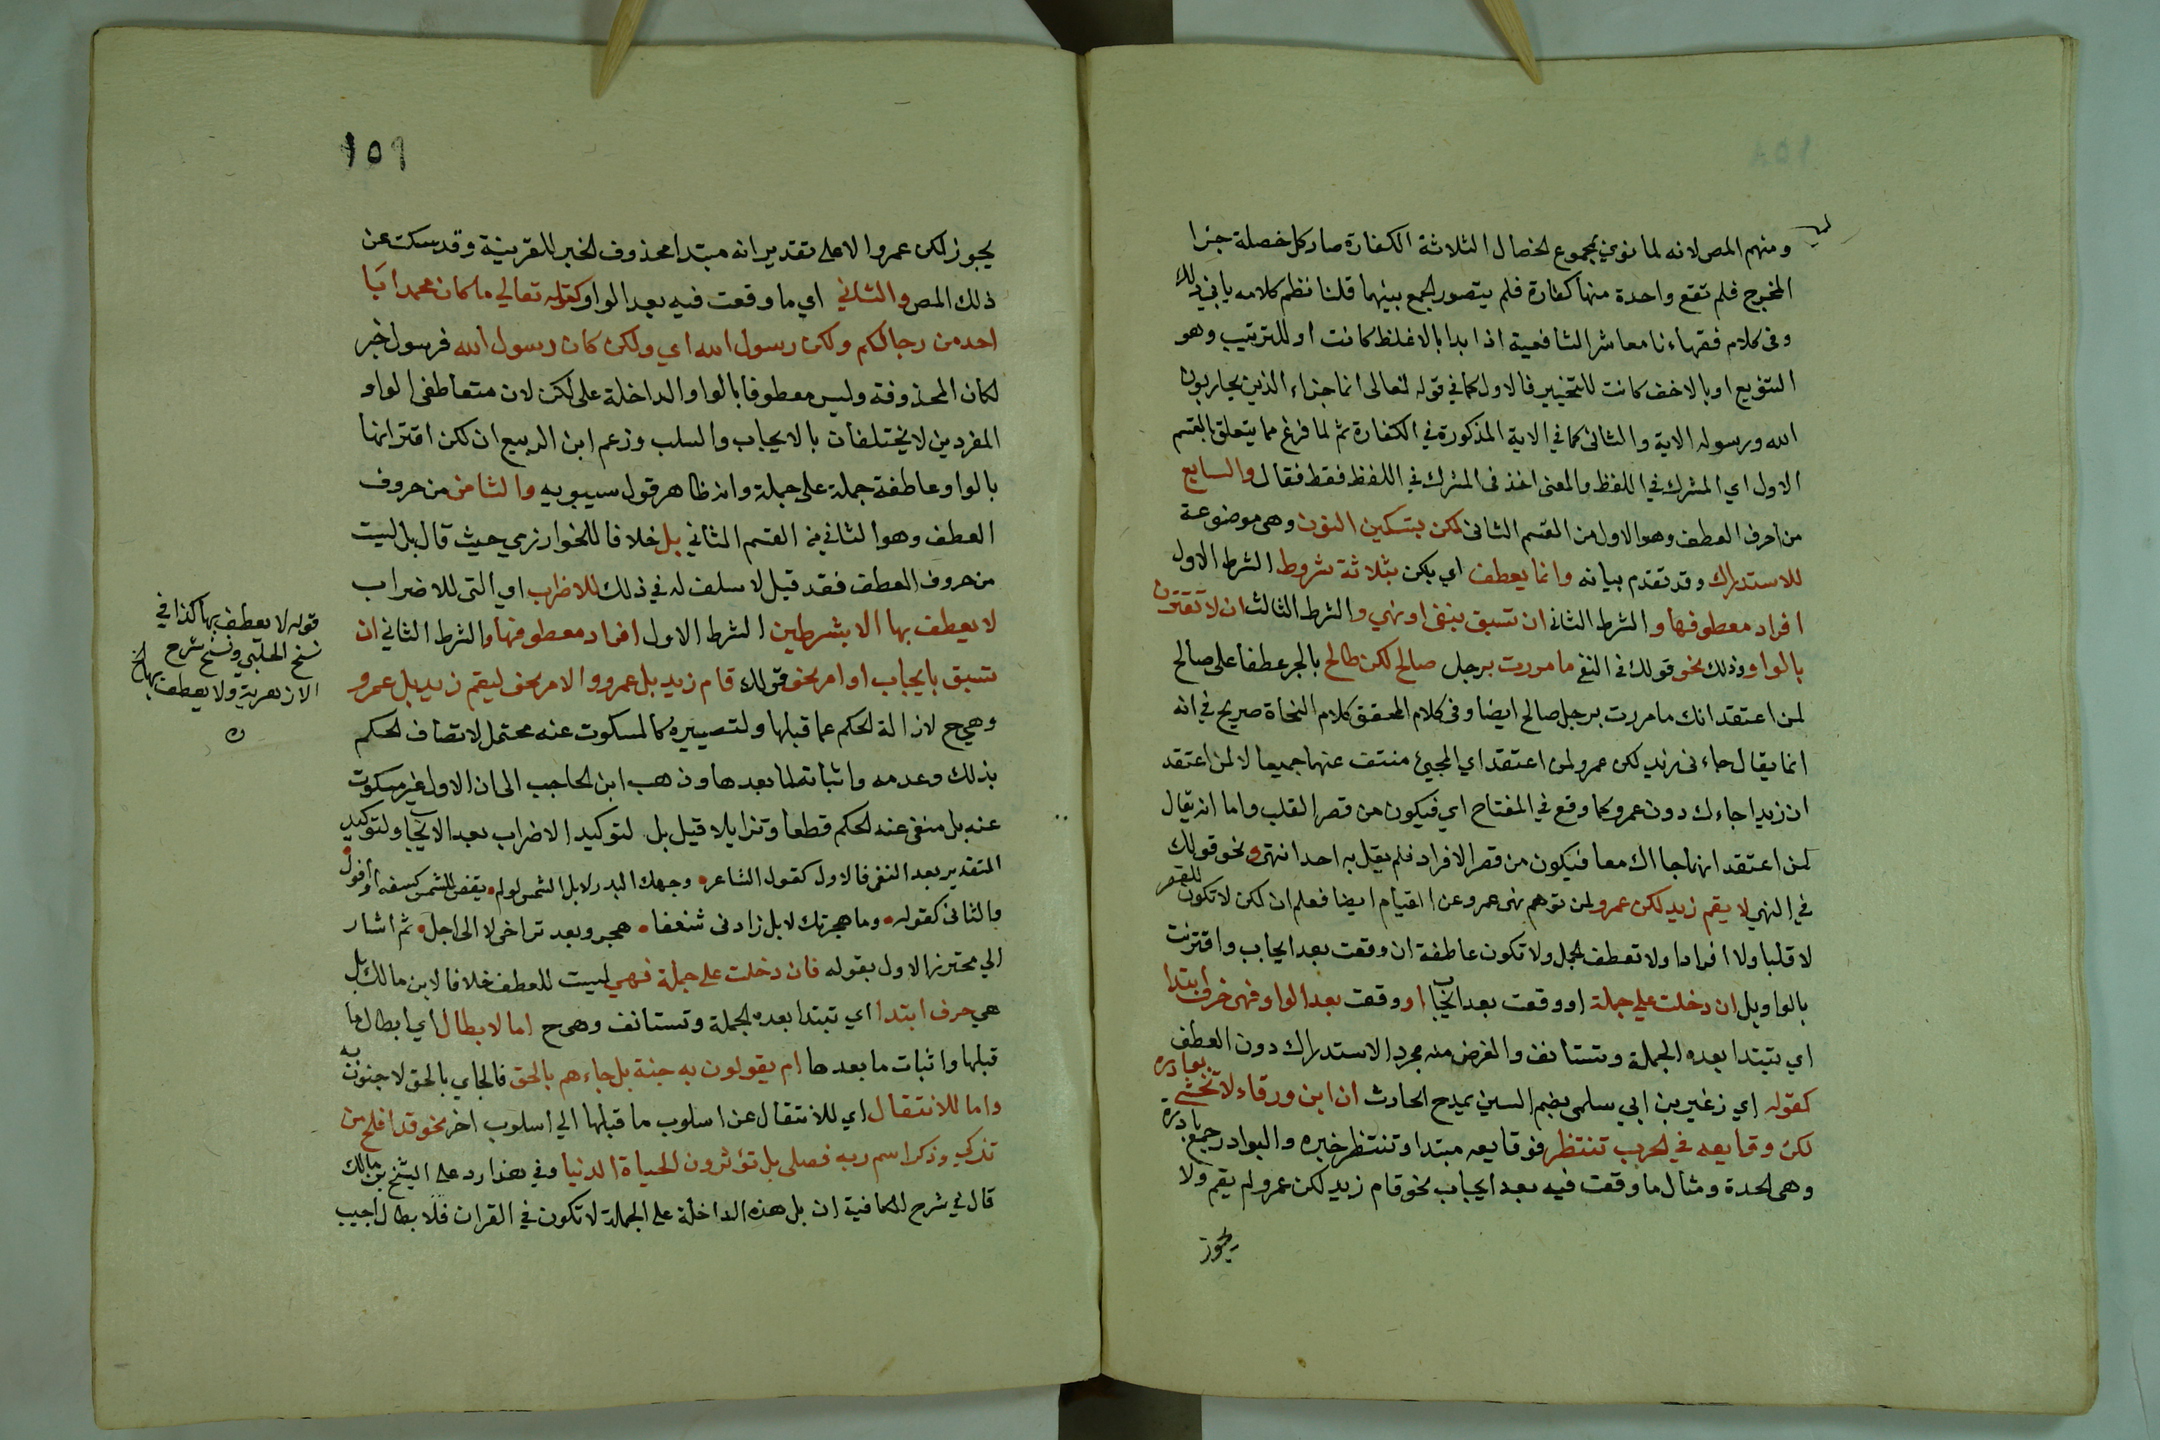 ومنهم المص لانه لما نوي مجموع الخصال الثلاثة الكفارة صار كل خصلة جزا
المخرج فلم تقع واحدة منها كفارة فلم يتصور الجمع بينهما قلنا نظم كلامه يابي ذلك
وفى كلام فقهاءنا معاشر الشافعية اذا بدا بالاغلظ كانت او للترتيب وهو
التنويع او بالاخف كانت للتخيير فالاول كما في قوله تعالى انما جزاء الذين يحاربون
الله ورسوله الاية والثانى كما في الاية المذكورة في الكفارة ثم لما فرغ مما يتعلق بالقسم
الاول اي المشرك في اللفظ والمعنى اخذ فى المشرك في اللفظ فقط فقال والسابع
من احرف العطف وهو الاول من القسم الثانى لكن بتسكين النون وهى موضوعة
للاستدراك وقد تقدم بيانه وانما يعطف اي بلكن بثلاثة شروط الشرط الاول
افراد معطوفها والشرط الثانى ان تسبق بنفى او نهي والشرط الثالث ان لا تقترن
بالواو وذلك نحو قولك فى النفي ما مررت برجل صالح لكن طالح بالجر عطفا على صالح
لمن اعتقد انك مامررت برجل صالح ايضا وفى كلام المحقق كلام النحاة صريح في انه
انما يقال ماجاءنى زيد لكن عمرو لمن اعتقد اي المجيئ منتف عنهما جميعا لا لمن اعتقد
ان زيدا جاءك دون عمرو كما وقع في المفتاح اي فيكون من قصر القلب واما انه يقال
لمن اعتقد انهما جااك معا فيكون من قصر الافراد فلم يقل به احد انتهى ونحو قولك
في النهي لا يقم زيد لكن عمرو لمن توهم نهى عمرو عن القيام ايضا فعلم ان لكن لا تكون للقصر
لا قلبا ولا افرادا ولا تعطف الجمل ولا تكون عاطفة ان وقعت بعد ايجاب واقترنت
بالواو بل ان دخلت علي جملة او وقعت بعد ايجاب او وقعت بعد الواو فهى حرف ابتدا
اي تبتدا بعده الجملة وتستانف والغرض منه مجرد الاستدراك دون العطف
كقوله اي زهير بن ابي سلمى بضم السين يمدح الحارث ان ابن ورقاء لا تخشى بوادره
لكن وقايعه في الحرب تنتظر فوقايعه مبتدا وتنتظر خبره والبوادر جمع بادرة
وهى الحدة ومثال ما وقعت فيه بعد ايجاب نحو قام زيد لكن عمرو لم يقم ولا
يجوز
١٥٩
يجوز لكن عمرو الا على تقدير انه مبتدا محذوف الخبر للقرينة وقد سكت عن
ذلك المص والثاني اي ما وقعت فيه بعد الواو كقوله تعالي ما كان محمد ابا
احد من رجالكم ولكن رسول الله اي ولكن كان رسول الله فرسول خبر
لكان المحذوفة وليس معطوفا بالواو الداخلة على لكن لان متعاطفى الواو
المفردين لا يختلفان بالايجاب والسلب وزعم ابن الربيع ان لكن اقترانها
بالواو عاطفة جملة على جملة وانه ظاهر قول سيبويه والثامن من حروف
العطف وهو الثاني من القسم الثاني بل خلافا للخوارزمي حيث قال بل ليست
من حروف العطف فقد قيل لا سلف له في ذلك للاضراب اي التى للاضراب
لا يعطف بها الا بشرطين الشرط الاول افراد معطوفها والشرط الثاني ان
تسبق بايجاب او امر نحو قولك قام زيد بل عمرو والامر نحو ليقم زيد بل عمرو
وهي ح لازالة الحكم عما قبلها ولتصييره كالمسكوت عنه محتمل لاتصاف الحكم
بذلك وعدمه واثباته لما بعدها وذهب ابن الحاجب الى ان الاول غير مسكوت
عنه بل منفى عنه الحكم قطعا وتزاد لا قبل بل لتوكيد الاضراب بعد الايجاب ولتوكيد
التقدير بعد النفى فالاول كقول الشاعر وجهك البدر لا بل الشمس لو لم يقض للشمس كسفة او افول
والثانى كقوله وما هجرتك لا بل زادنى شغفا هجر وبعد تراخى لا الى اجل ثم اشار
الي محترز الاول بقوله فان دخلت على جملة فهي ليست للعطف خلافا لابن مالك بل
هي حرف ابتدا اي تبتدا بعده الجملة وتستانف وهى ح اما لابطال اي ابطال ما
قبلها واثبات ما بعدها ام يقولون به جنة بل جاءهم بالحق فالجاي بالحق لا جنون به
واما للانتقال اي للانتقال عن اسلوب ما قبلها الي اسلوب اخر نحو قد افلح من
تزكي وذكر اسم ربه فصلى بل تؤثرون الحياة الدنيا وفي هذا رد على الشيخ بن مالك
قال في شرح الكافية ان بل هذه الداخلة على الجملة لا تكون في القران فلا بطال اجيب
قوله لا يعطف بها كذا في
نسخ الحلبي ونسخ شرح
الازهرية ولا يعطف بها الخ